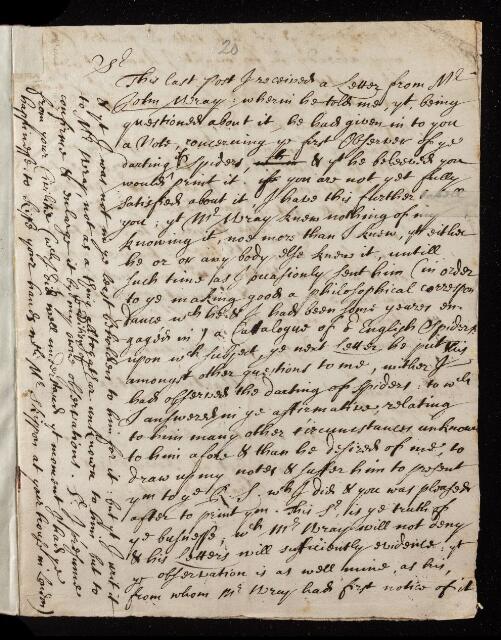 20
Sr
This last post I received a Letter from Mr
John Wray: wherin he told me, yt being
questioned about it, he had given in to you
a Note, concerning ye first Observer of ye
darting Spiders, & yt he beleeved you
would print it. if you are not yet fully
satisfied about it, I have this further
you: yt Mr Wray knew nothing of my
knowing it, noe more than I knew, yt either
he or any body else knew it, untill
such time as I occasionly sent him (in order
to ye making good a philosophical correspon
dance wch he & I had been some yeares en
gaged in) a Catalogue of English Spiders
upon wch subject, ye next Letter he put this
amongst other questions to me, whither I
had observed the darting of Spiders: to wch
I answered in ye affirmative, relating
to him many other circumstances unknowne
to him afore & than he desired of me, to
draw up my notes & suffer him to present
ym to ye R. S. wch I did & you was pleased
after to print ym. This Sr is ye truth of
ye businesse; wch Mr Wray will not deny
& his Letters will sufficiently evidence: yt
ye observation is as well mine, as his,
from whom Mr Wray had first notice of it
& yt I was not in ye least beholden to him for it: but yt I writ it
to Mr Wray, not as a thing alltogether unknown to him, but to
confirme & enlarge by my owne observations. Sr I presume
from your Civilitie (wch I did well understand yt moment I had ye
happinesse to kisse your hands wth Mr Skippon at your house in London)